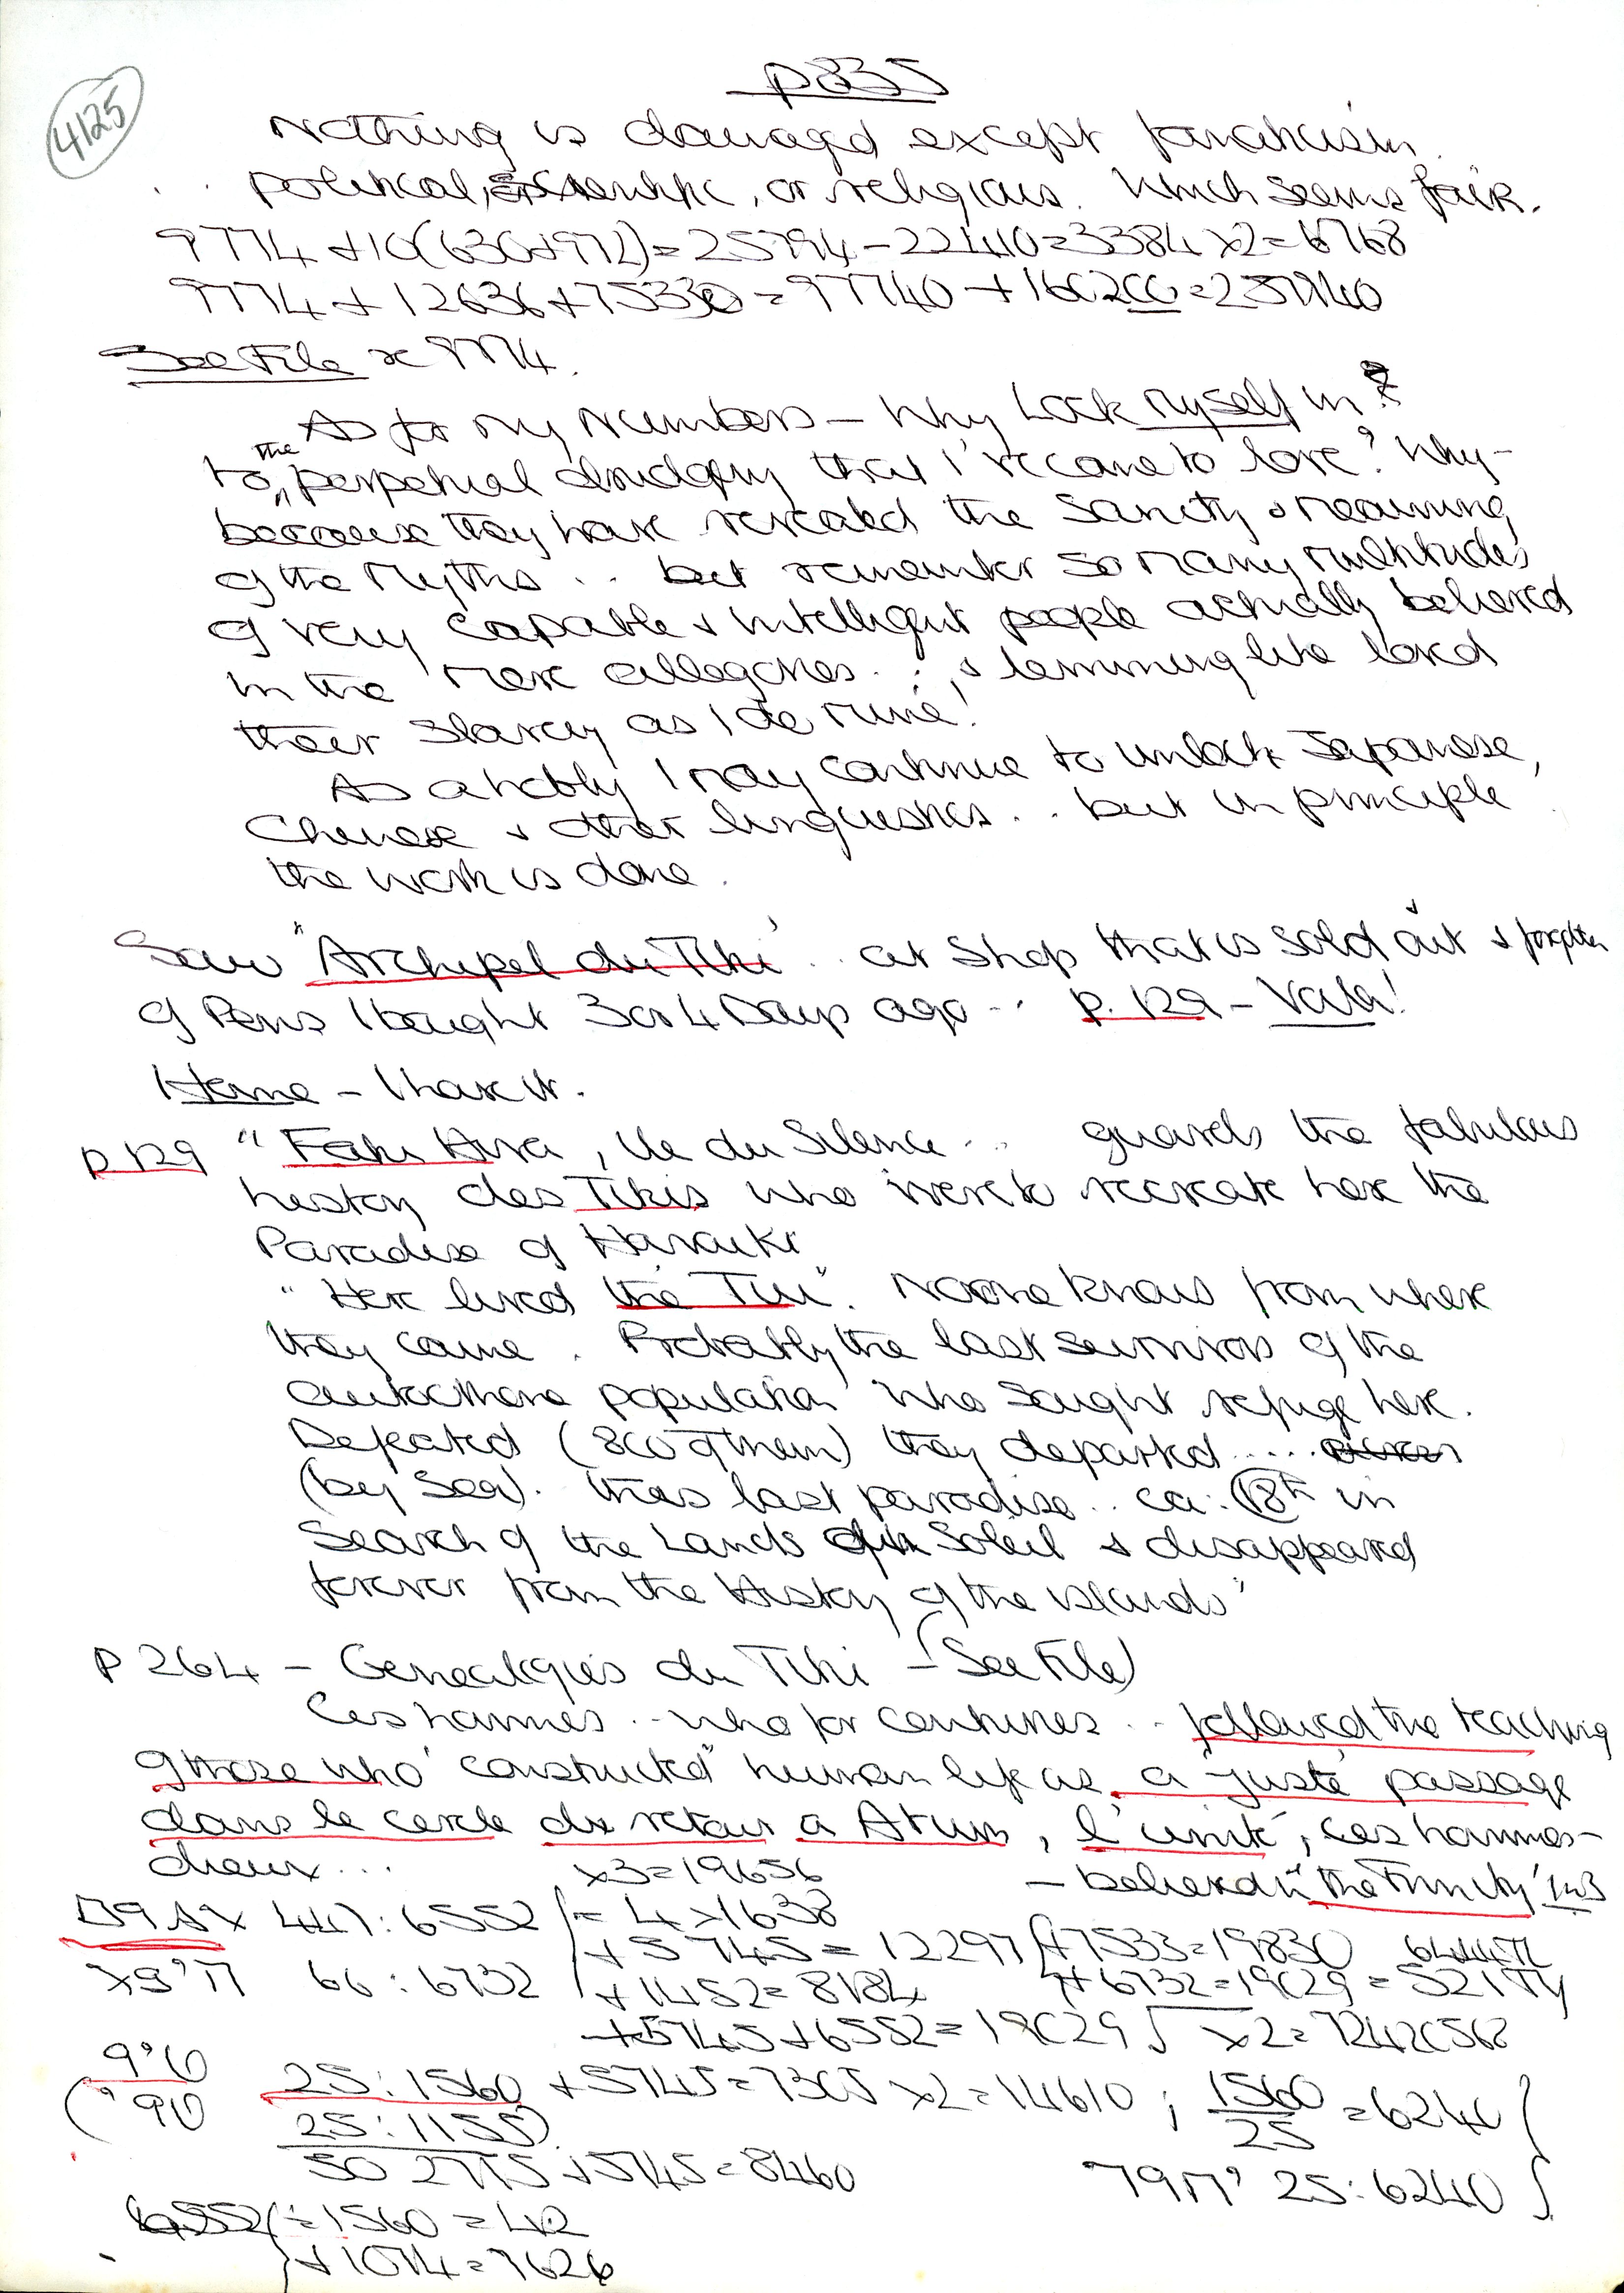 4125
p835
Nothing is damaged except fanaticism
political, scientific, or religious. Which seems fair.
9774 + 10(630+972) = 25794 - 22410 = 3384 x2 = 6768
9774 + 12636 + 75330 = 97740 + 160200 = 257940
See File x 9774.
As for my numbers – Why Lock myself in?
to the perpetual drudgery that I've come to love? Why –
because they have revealed the sanity & meaning
of the Myths . . but remember so many multitudes
of very capable & intelligent people actually believed
in the mere allegories . . & lemming like loved
their slavery as I do mine!
As a hobby I may continue to unlock Japanese,
Chinese & other linguistics . . but in principle
the work is done.
Saw "Archipel du Tiki" . . at Shop that is sold out & forgotten
of Pens I bought 3 or 4 Days ago . . p. 129 – Voila!
Home – I have it.
p 129 "Fatu Hiva, Ile du Silence . . guards the fabulous
history des Tikis who were to recreate here the
Paradise of Havaiki
"Here lived the Tiu". No one knows from where
they came. Probably the last survivors of the
autocthone population who sought refuge here.
Defeated (800 of them) they departed ....
(by Sea). this last paradise . . ca: 18th in
Search of the Lands du Soleil & disappeared
forever from the History of the islands"
P 264 – Genealogies du Tiki – (See File)
Ces hommes . . who for centuries . . followed the teaching
of those who "constructed" human life as a juste passage
dans le cercle du retour a Atum, l'unité, ces hommes-
dieux ... x3 = 19656 – believed in "the Trinity" 1 in 3
447 : 6552 = 4 x 1638
+ 5745 = 12297 + 7533 = 19830
66 : 6732 + 1452 = 8184 + 6732 = 19029 =
+ 5745 + 6552 = 19029 x2 = 72420568
25 : 1560 + 5745 = 7305 x2 = 14610 ; 1560/25 = 6240
25 : 1155)
50 2715 + 5745 = 8460
25 : 6240
6552 ÷ 1560 = 42
+ 1074 = 7626